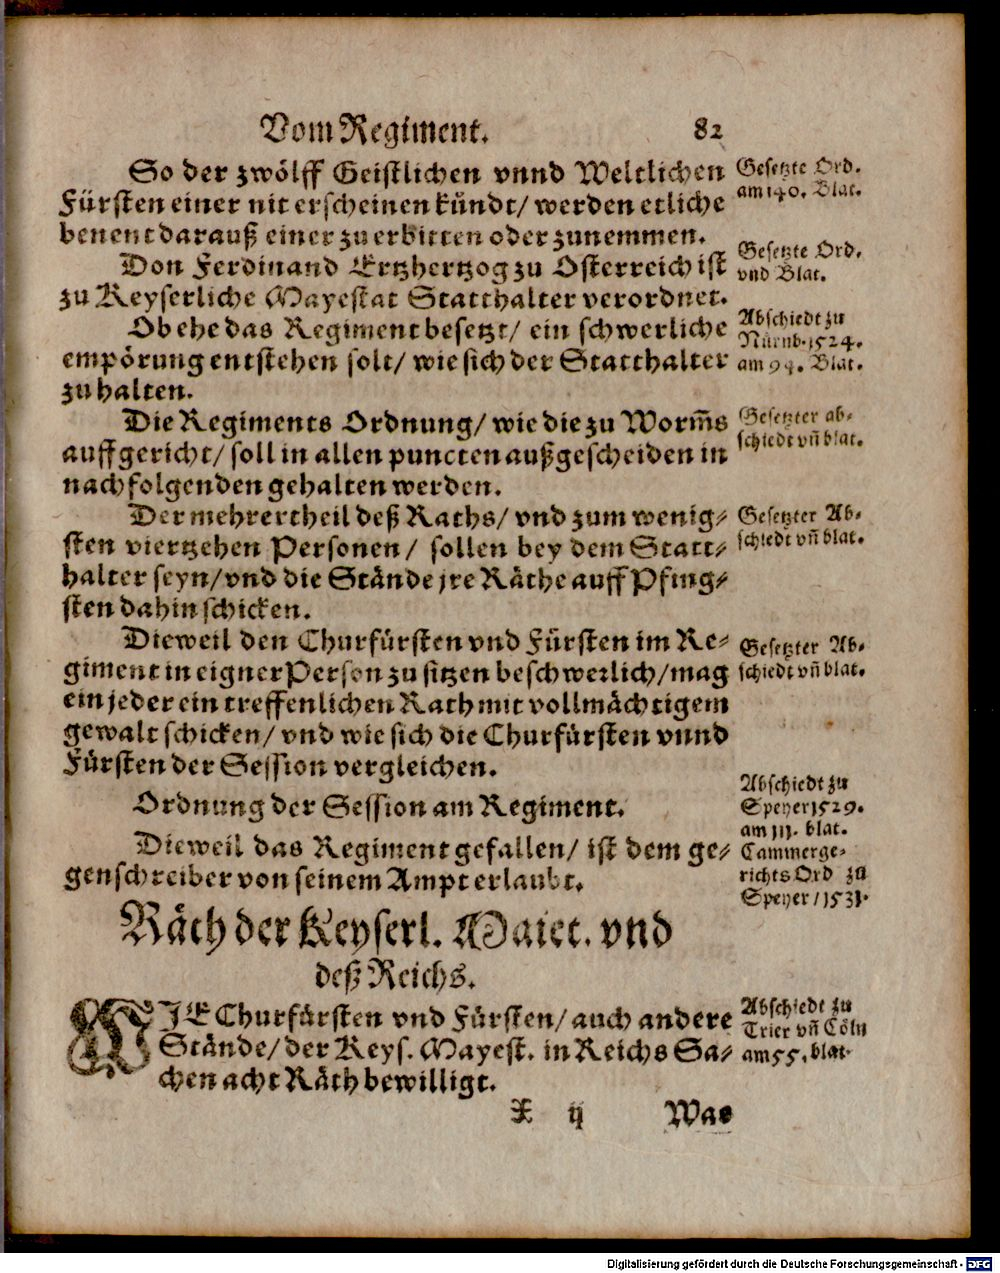 Vom Regiment. 82
So der zwölff Geistlichen vnnd Weltlichen
Fürsten einer nit erscheinen kündt/ werden etliche
benent darauß einer zu erbitten oder zunemmen.
Gesetzte Ord.
am 140. Blat.
Don Ferdinand Ertzhertzog zu Osterreich ist
zu Keyserliche Mayestat Statthalter verordnet.
Gesetzte Ord.
vnd Blat.
Ob ehe das Regiment besetzt/ ein schwerliche
empörung entstehen solt/ wie sich der Statthalter
zu halten.
Abschiedt zu
Nürnb. 1524.
am 94. Blat.
Die Regiments Ordnung/ wie die zu Worm̃s
auffgericht/ soll in allen puncten außgescheiden in
nachfolgenden gehalten werden.
Gesetzter ab-
schiedt vñ blat.
Der mehrertheil deß Raths/ vnd zum wenig-
sten viertzehen Personen/ sollen bey dem Statt-
halter seyn/ vnd die Stände jre Räthe auff Pfing-
sten dahin schicken.
Gesetzter Ab-
schiedt vñ blat.
Dieweil den Churfürsten vnd Fürsten im Re-
giment in eigner Person zu sitzen beschwerlich/ mag
ein jeder ein treffenlichen Rath mit vollmächtigem
gewalt schicken/ vnd wie sich die Churfürsten vnnd
Fürsten der Session vergleichen.
Gesetzter Ab-
schiedt vñ blat.
Ordnung der Session am Regiment.
Dieweil das Regiment gefallen/ ist dem ge-
genschreiber von seinem Ampt erlaubt.
Abschiedt zu
Speyer 1529.
am 111. blat.
Cammerge-
richts Ord zu
Speyer/ 1531.
Räth der Keyserl. Maiet. vnd
deß Reichs.
WIE Churfürsten vnd Fürsten/ auch andere
Stände/ der Keys. Mayest. in Reichs Sa-
chen acht Räth bewilligt.
Abschiedt zu
Trier vñ Cöln
am 55. blat.
X ij Was
Digitalisierung gefördert durch die Deutsche Forschungsgemeinschaft - DFG